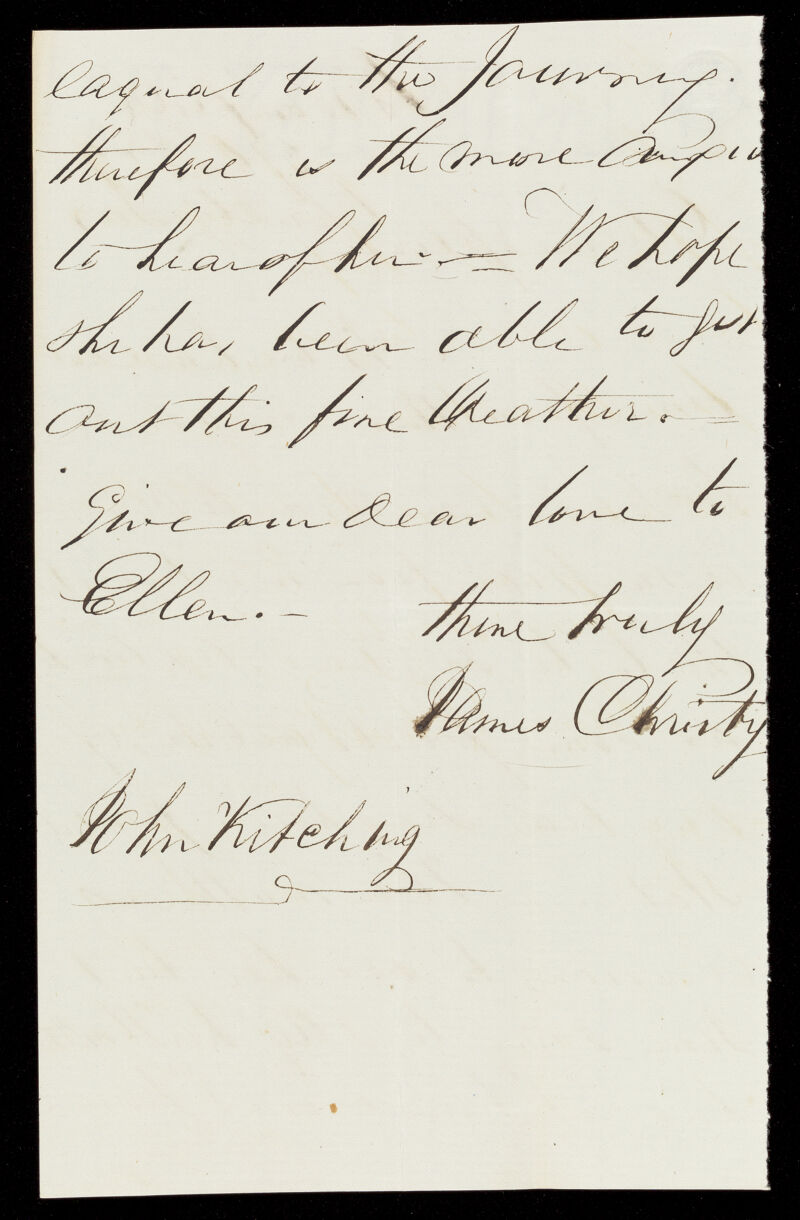 eaqual to the Journey.
therefore is the more Anxio
to hear of her. = We hope
she has been able to get
out this fine Weather. =
Give our Dear love to
Ellen. -
thine truly
James Christy
John Kitching